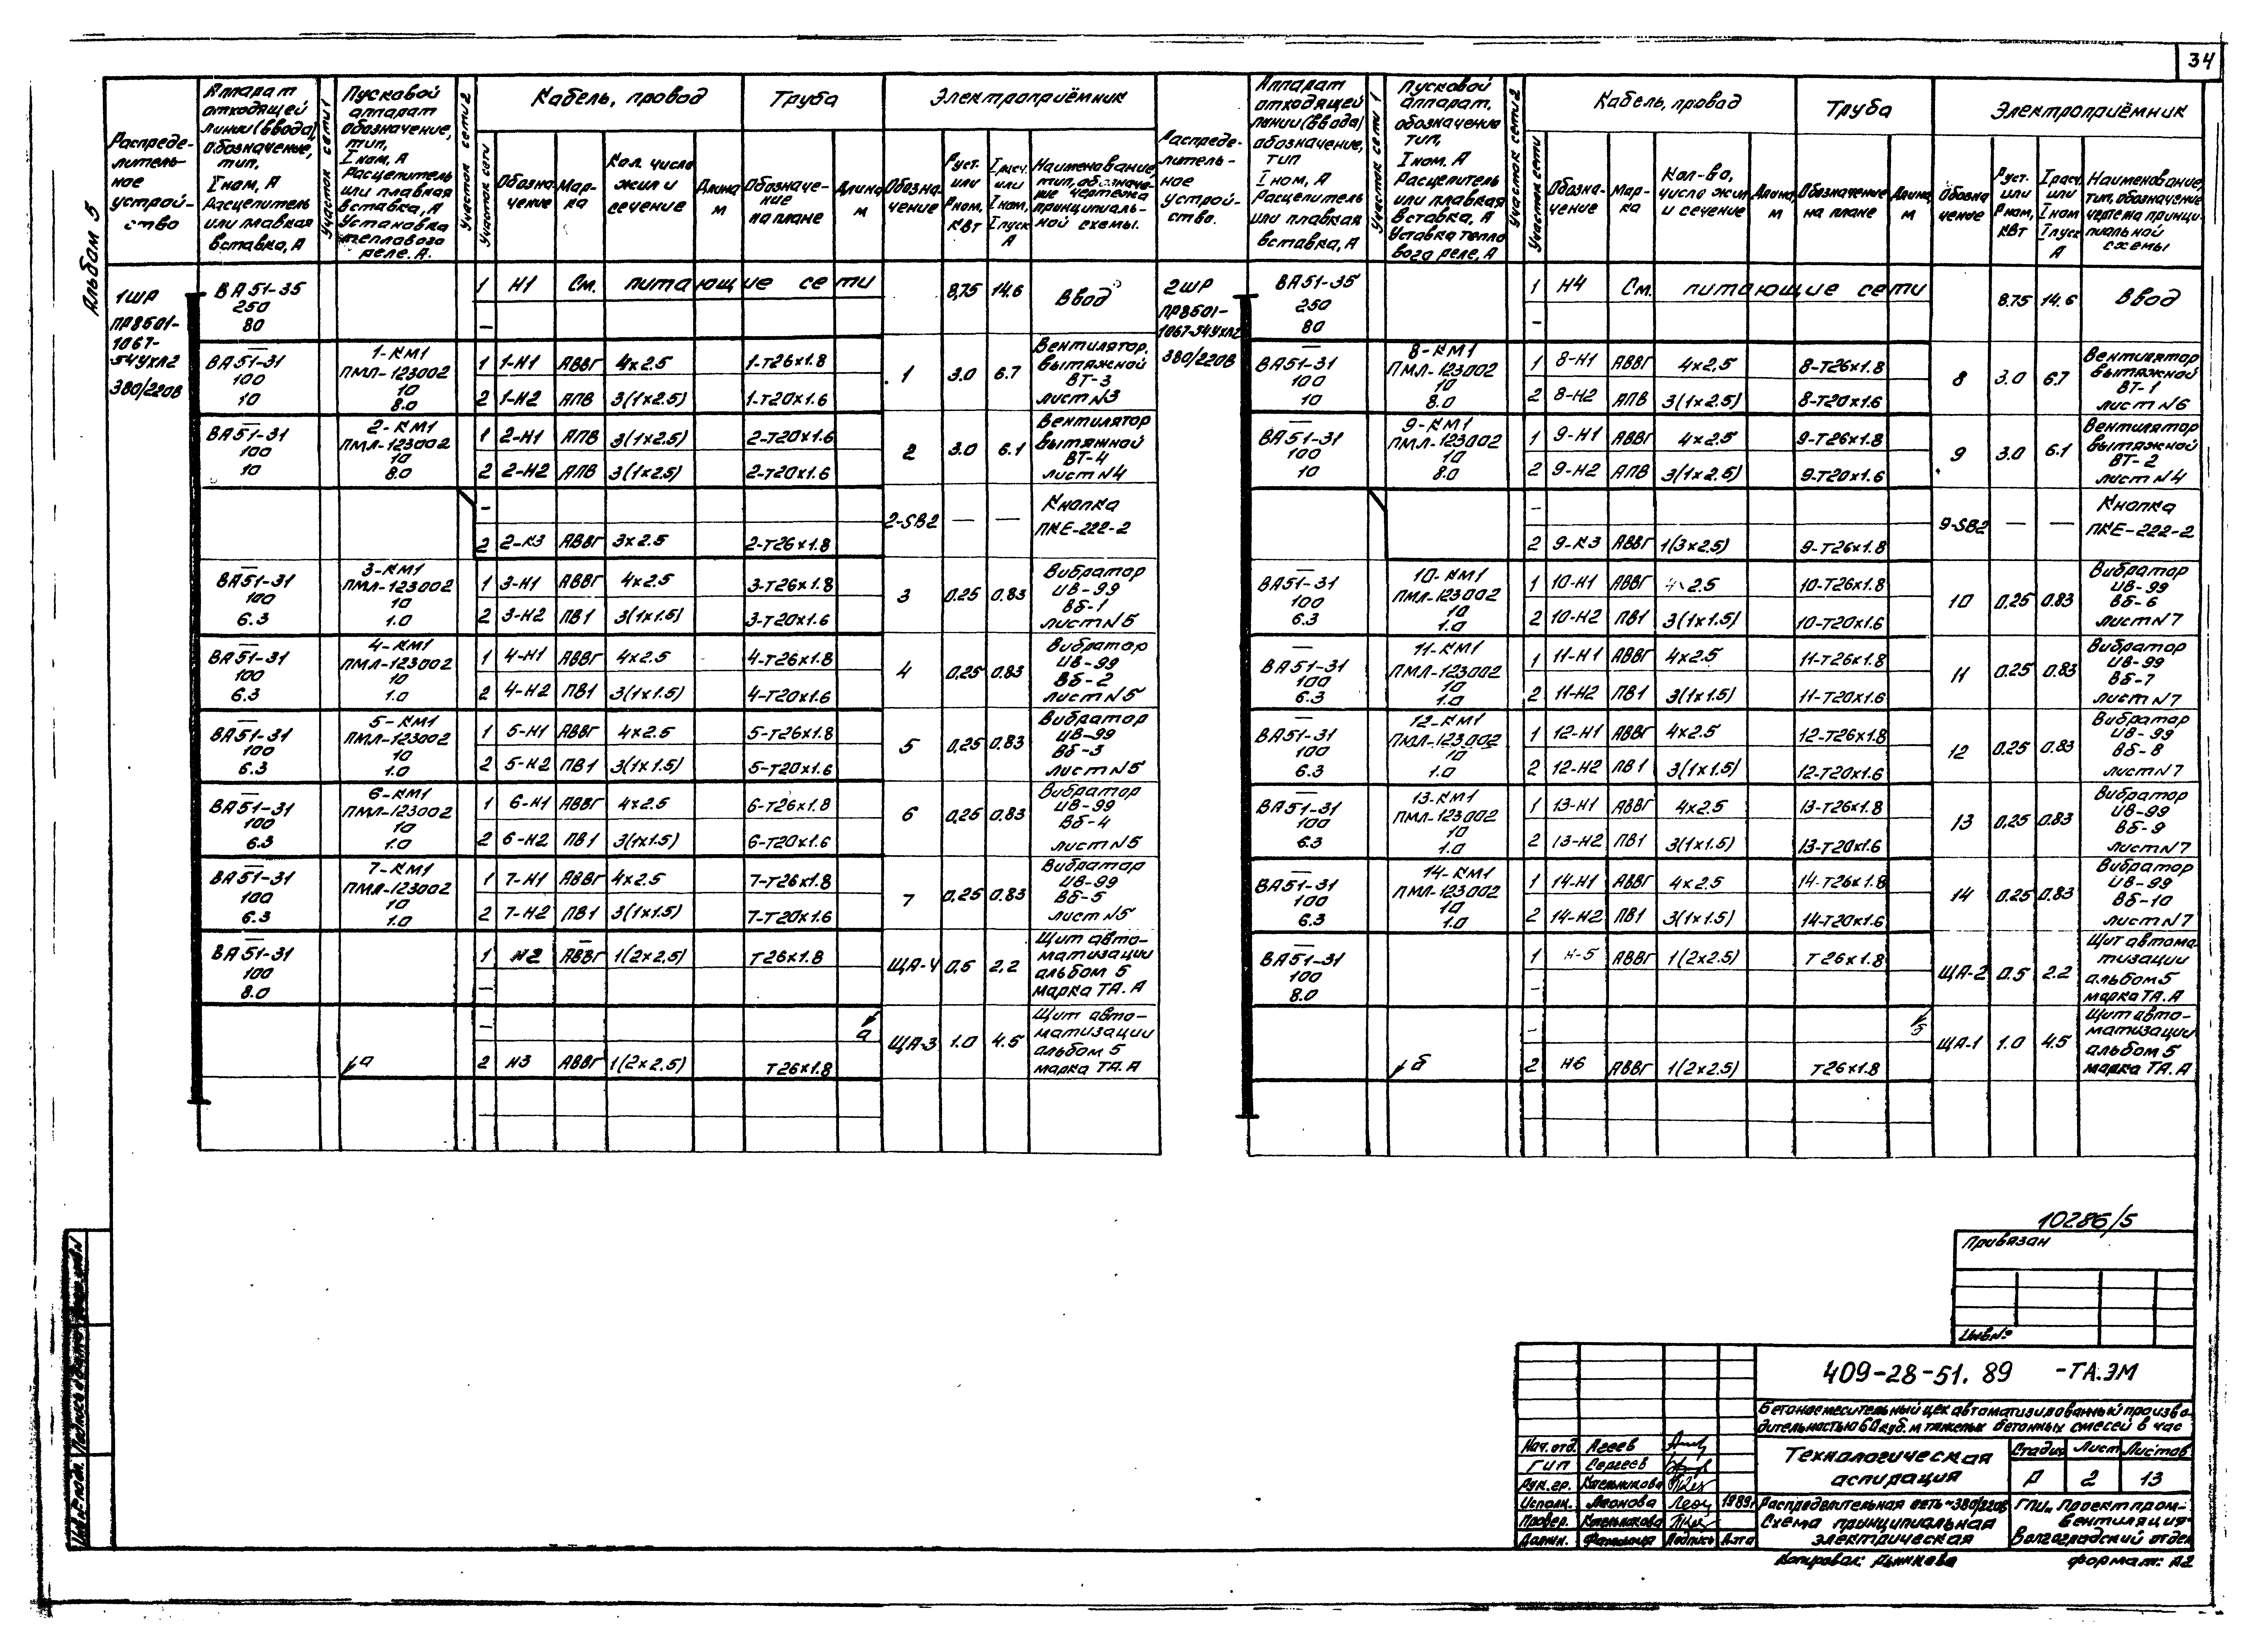 34
Альбом 5
Распреде-
литель-
ное
устрой-
ство
Аппарат
отходящей
линии (ввода),
обозначение,
тип,
I ном, А
Расцепитель
или плавкая
вставка, А
Участок сети 1
Пусковой
аппарат
обозначение,
тип,
I ном, А
Расцепитель
или плавкая
вставка, А
Установка
теплового
реле. А.
Участок сети 2
Кабель, провод
Труба
Электроприёмник
Участок сети
Обозна-
чение
Мар-
ка
Кол. число
жил и
сечение
Длина
м
Обозначе-
ние
на плане
Длина
м
Обозна-
чение
Руст.
или
Рном,
кВт
I расч.
или
I ном,
I пуск
А
Наименование,
тип, обозначе-
ние чертежа
принципиаль-
ной схемы.
1ШР
ПР8501-
1067-
54УХЛ2
380/220В
ВА51-35
250
80
1 Н1 См. питающие сети 8,75 14.6 Ввод
–
ВА51-31
100
10
1-КМ1
ПМЛ-123002
10
8.0
1 1-Н1 АВВГ 4х2.5 1-Т26х1.8
2 1-Н2 АПВ 3(1х2.5) 1-Т20х1.6
1 3.0 6.7
Вентилятор
вытяжной
ВТ-3
лист N3
ВА51-31
100
10
2-КМ1
ПМЛ-123002
10
8.0
1 2-Н1 АПВ 3(1х2.5) 2-Т20х1.6
2 2-Н2 АПВ 3(1х2.5) 2-Т20х1.6
2 3.0 6.1
Вентилятор
вытяжной
ВТ-4
лист N4
–
2 2-К3 АВВГ 3х2.5 2-Т26х1.8
2-SB2 — —
Кнопка
ПКЕ-222-2
ВА51-31
100
6.3
3-КМ1
ПМЛ-123002
10
1.0
1 3-Н1 АВВГ 4х2.5 3-Т26х1.8
2 3-Н2 ПВ1 3(1х1.5) 3-Т20х1.6
3 0.25 0.83
Вибратор
ИВ-99
ВБ-1
лист N5
ВА51-31
100
6.3
4-КМ1
ПМЛ-123002
10
1.0
1 4-Н1 АВВГ 4х2.5 4-Т26х1.8
2 4-Н2 ПВ1 3(1х1.5) 4-Т20х1.6
4 0.25 0.83
Вибратор
ИВ-99
ВБ-2
лист N5
ВА51-31
100
6.3
5-КМ1
ПМЛ-123002
10
1.0
1 5-Н1 АВВГ 4х2.5 5-Т26х1.8
2 5-Н2 ПВ1 3(1х1.5) 5-Т20х1.6
5 0,25 0.83
Вибратор
ИВ-99
ВБ-3
лист N5
ВА51-31
100
6.3
6-КМ1
ПМЛ-123002
10
1.0
1 6-Н1 АВВГ 4х2.5 6-Т26х1.8
2 6-Н2 ПВ1 3(1х1.5) 6-Т20х1.6
6 0,25 0.83
Вибратор
ИВ-99
ВБ-4
лист N5
ВА51-31
100
6.3
7-КМ1
ПМЛ-123002
10
1.0
1 7-Н1 АВВГ 4х2.5 7-Т26х1.8
2 7-Н2 ПВ1 3(1х1.5) 7-Т20х1.6
7 0,25 0.83
Вибратор
ИВ-99
ВБ-5
лист N5
ВА51-31
100
8.0
1 Н2 АВВГ 1(2х2.5) Т26х1.8
–
ЩА-4 0,5 2,2
Щит авто-
матизации
альбом 5
марка ТА.А
–
а
2 Н3 АВВГ 1(2х2.5) Т26х1.8
а
ЩА-3 1.0 4.5
Щит авто-
матизации
альбом 5
марка ТА.А
Распреде-
литель-
ное
устрой-
ство.
Аппарат
отходящей
линии (ввода)
обозначение,
тип
I ном, А
Расцепитель
или плавкая
вставка, А
Участок сети 1
Пусковой
аппарат,
обозначение
тип,
I ном. А
Расцепитель
или плавкая
вставка, А
Уставка тепло
вого реле, А
Участок сети 2
Кабель, провод
Труба
Электроприёмник
Участок сети
Обозна-
чение
Мар-
ка
Кол-во,
число жил
и сечение
Длина,
м
Обозначение
на плане
Длина,
м
Обозна
чение
Руст.
или
Рном,
кВт
I расч.
или
I ном
I пуск
А
Наименование,
тип, обозначение
чертежа принци-
пиальной
схемы
2ШР
ПР8501-
1067-54УХЛ2
380/220В
ВА51-35
250
80
1 Н4 См. питающие сети 8.75 14,6 Ввод
–
ВА51-31
100
10
8-КМ1
ПМЛ-123002
10
8.0
1 8-Н1 АВВГ 4х2,5 8-Т26х1.8
2 8-Н2 АПВ 3(1х2.5) 8-Т20х1.6
8 3.0 6.7
Вентилятор
вытяжной
ВТ-1
лист N6
ВА51-31
100
10
9-КМ1
ПМЛ-123002
10
8.0
1 9-Н1 АВВГ 4х2.5 9-Т26х1.8
2 9-Н2 АПВ 3(1х2.5) 9-Т20х1.6
9 3.0 6.1
Вентилятор
вытяжной
ВТ-2
лист N4
–
2 9-К3 АВВГ 1(3х2.5) 9-Т26х1.8
9-SB2 — —
Кнопка
ПКЕ-222-2
ВА51-31
100
6.3
10-КМ1
ПМЛ-123002
10
1.0
1 10-Н1 АВВГ 4х2.5 10-Т26х1.8
2 10-Н2 ПВ1 3(1х1.5) 10-Т20х1.6
10 0,25 0.83
Вибратор
ИВ-99
ВБ-6
лист N7
ВА51-31
100
6.3
11-КМ1
ПМЛ-123002
10
1.0
1 11-Н1 АВВГ 4х2.5 11-Т26х1.8
2 11-Н2 ПВ1 3(1х1.5) 11-Т20х1.6
11 0.25 0.83
Вибратор
ИВ-99
ВБ-7
лист N7
ВА51-31
100
6.3
12-КМ1
ПМЛ-123002
10
1.0
1 12-Н1 АВВГ 4х2.5 12-Т26х1.8
2 12-Н2 ПВ1 3(1х1.5) 12-Т20х1.6
12 0.25 0.83
Вибратор
ИВ-99
ВБ-8
лист N7
ВА51-31
100
6.3
13-КМ1
ПМЛ-123002
10
1.0
1 13-Н1 АВВГ 4х2.5 13-Т26х1.8
2 13-Н2 ПВ1 3(1х1.5) 13-Т20х1.6
13 0,25 0.83
Вибратор
ИВ-99
ВБ-9
лист N7
ВА51-31
100
6.3
14-КМ1
ПМЛ-123002
10
1.0
1 14-Н1 АВВГ 4х2.5 14-Т26х1.8
2 14-Н2 ПВ1 3(1х1.5) 14-Т20х1.6
14 0.25 0.83
Вибратор
ИВ-99
ВБ-10
лист N7
ВА51-31
100
8.0
1 Н-5 АВВГ 1(2х2.5) Т26х1.8
–
ЩА-2 0.5 2.2
Щит автома
тизации
альбом 5
марка ТА.А
–
б
2 Н6 АВВГ 1(2х2.5) Т26х1.8
б
ЩА-1 1.0 4.5
Щит авто-
матизации
альбом 5
марка ТА.А
10286/5
Привязан
Инв.№
409-28-51.89 -ТА.ЭМ
Бетоносмесительный цех автоматизированный произво-
дительностью 60 куб.м тяжелых бетонных смесей в час
Нач.отд. Агеев
ГИП Сергеев
Рук.гр. Котельникова
Исполн. Леонова 1989г
Провер. Котельникова
Должн. Фамилия Подпись Дата
Технологическая
аспирация
Стадия Лист Листов
Р 2 13
Распределительная сеть ~380/220В
Схема принципиальная
электрическая
ГПИ „Проектпром-
вентиляция"
Волгоградский отдел
Копировал: Дынкова
формат: А2
Инв.№ подл. Подпись и дата Взам.инв.N